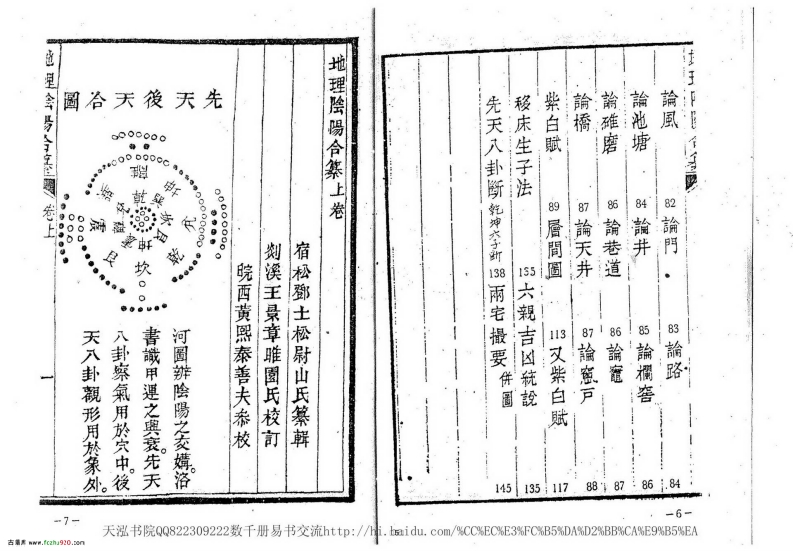 地理陰陽合纂
論風 82 論門 83 論路 84
論池塘 84 論井 85 論欄窖 86
論碓磨 86 論巷道 86 論竈 87
論橋 87 論天井 87 論窻戶 88
紫白賦 89 層間圖 113 又紫白賦 117
移床生子法 135 六親吉凶統說 135
先天八卦斷 乾坤六子斷 138 兩宅撮要 併圖 145
—6—
地理陰陽合纂上卷
宿松鄧士松尉山氏纂輯
剡溪王景章雅園氏校訂
皖西黃熙泰善夫叅校
先天後天合圖
河圖辨陰陽之交媾。洛
書識甲運之興衰。先天
八卦察氣用於穴中。後
天八卦觀形用於象外。
地理陰陽合纂
卷上
一
—7—
天泓书院QQ822309222数千册易书交流http://hi.baidu.com/%CC%EC%E3%FC%B5%DA%D2%BB%CA%E9%B5%EA
古易库 www.fczhu920.com